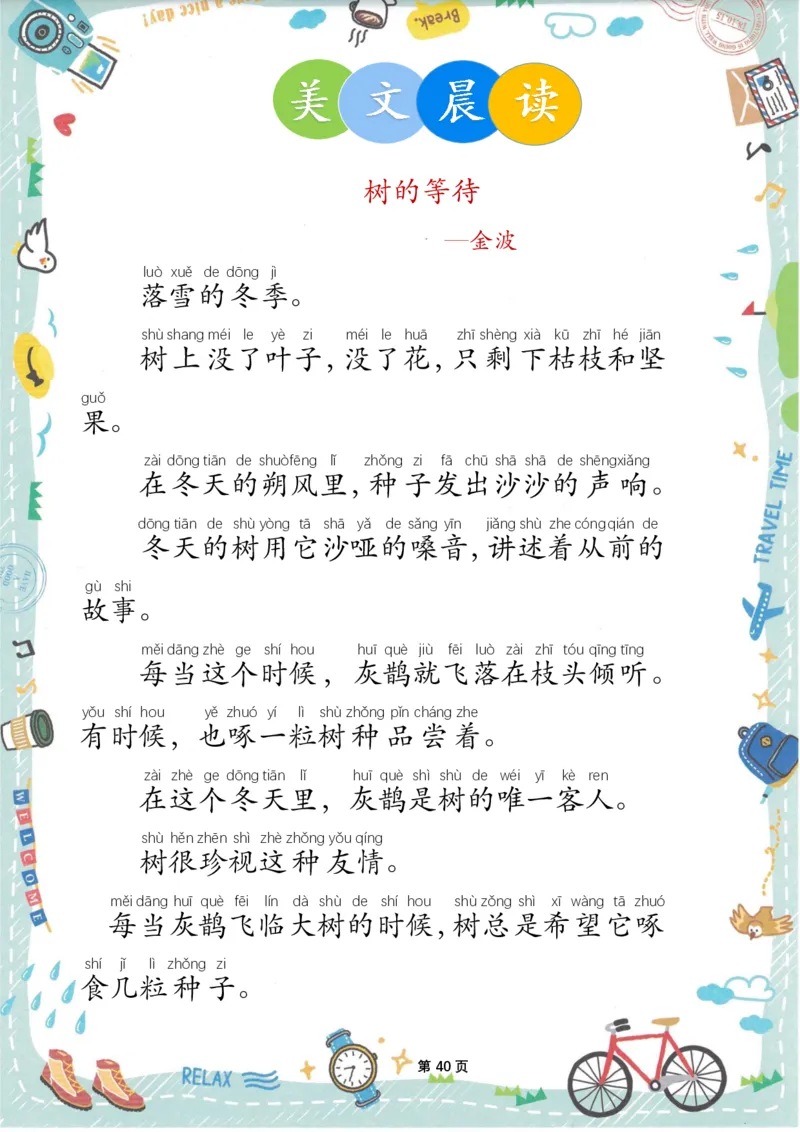 Have a nice day!
Break.
美文晨读
树的等待
—金波
luò xuě de dōng jì
落雪的冬季。
shù shang méi le yè zi méi le huā zhī shèng xià kū zhī hé jiān
树上没了叶子，没了花，只剩下枯枝和坚
guǒ
果。
zài dōng tiān de shuò fēng lǐ zhǒng zi fā chū shā shā de shēng xiǎng
在冬天的朔风里，种子发出沙沙的声响。
dōng tiān de shù yòng tā shā yǎ de sǎng yīn jiǎng shù zhe cóng qián de
冬天的树用它沙哑的嗓音，讲述着从前的
gù shi
故事。
měi dāng zhè ge shí hou huī què jiù fēi luò zài zhī tóu qīng tīng
每当这个时候，灰鹊就飞落在枝头倾听。
yǒu shí hou yě zhuó yí lì shù zhǒng pǐn cháng zhe
有时候，也啄一粒树种品尝着。
zài zhè ge dōng tiān lǐ huī què shì shù de wéi yī kè ren
在这个冬天里，灰鹊是树的唯一客人。
shù hěn zhēn shì zhè zhǒng yǒu qíng
树很珍视这种友情。
měi dāng huī què fēi lín dà shù de shí hou shù zǒng shì xī wàng tā zhuó
每当灰鹊飞临大树的时候，树总是希望它啄
shí jǐ lì zhǒng zi
食几粒种子。
TRAVEL TIME
WELCOME
RELAX
第 40 页